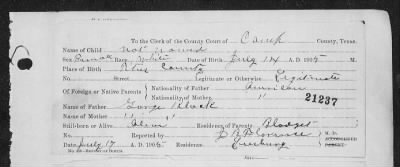 To the Clerk of the County Court of Camp County, Texas.
Name of Child Not Named
Sex Female Race White Date of Birth July 14 A. D. 1905 M.
Place of Birth Titus County
No. Street Legitimate or Otherwise Legitimate
Of Foreign or Native Parents Nationality of Father American
Nationality of Mother " "
21237
Name of Father George Block
Name of Mother " "
Still-born or Alive Alive Residence of Parents Blodget
No. Reported by M.D.
Date July 17 A. D. 1905 Residence PARENT